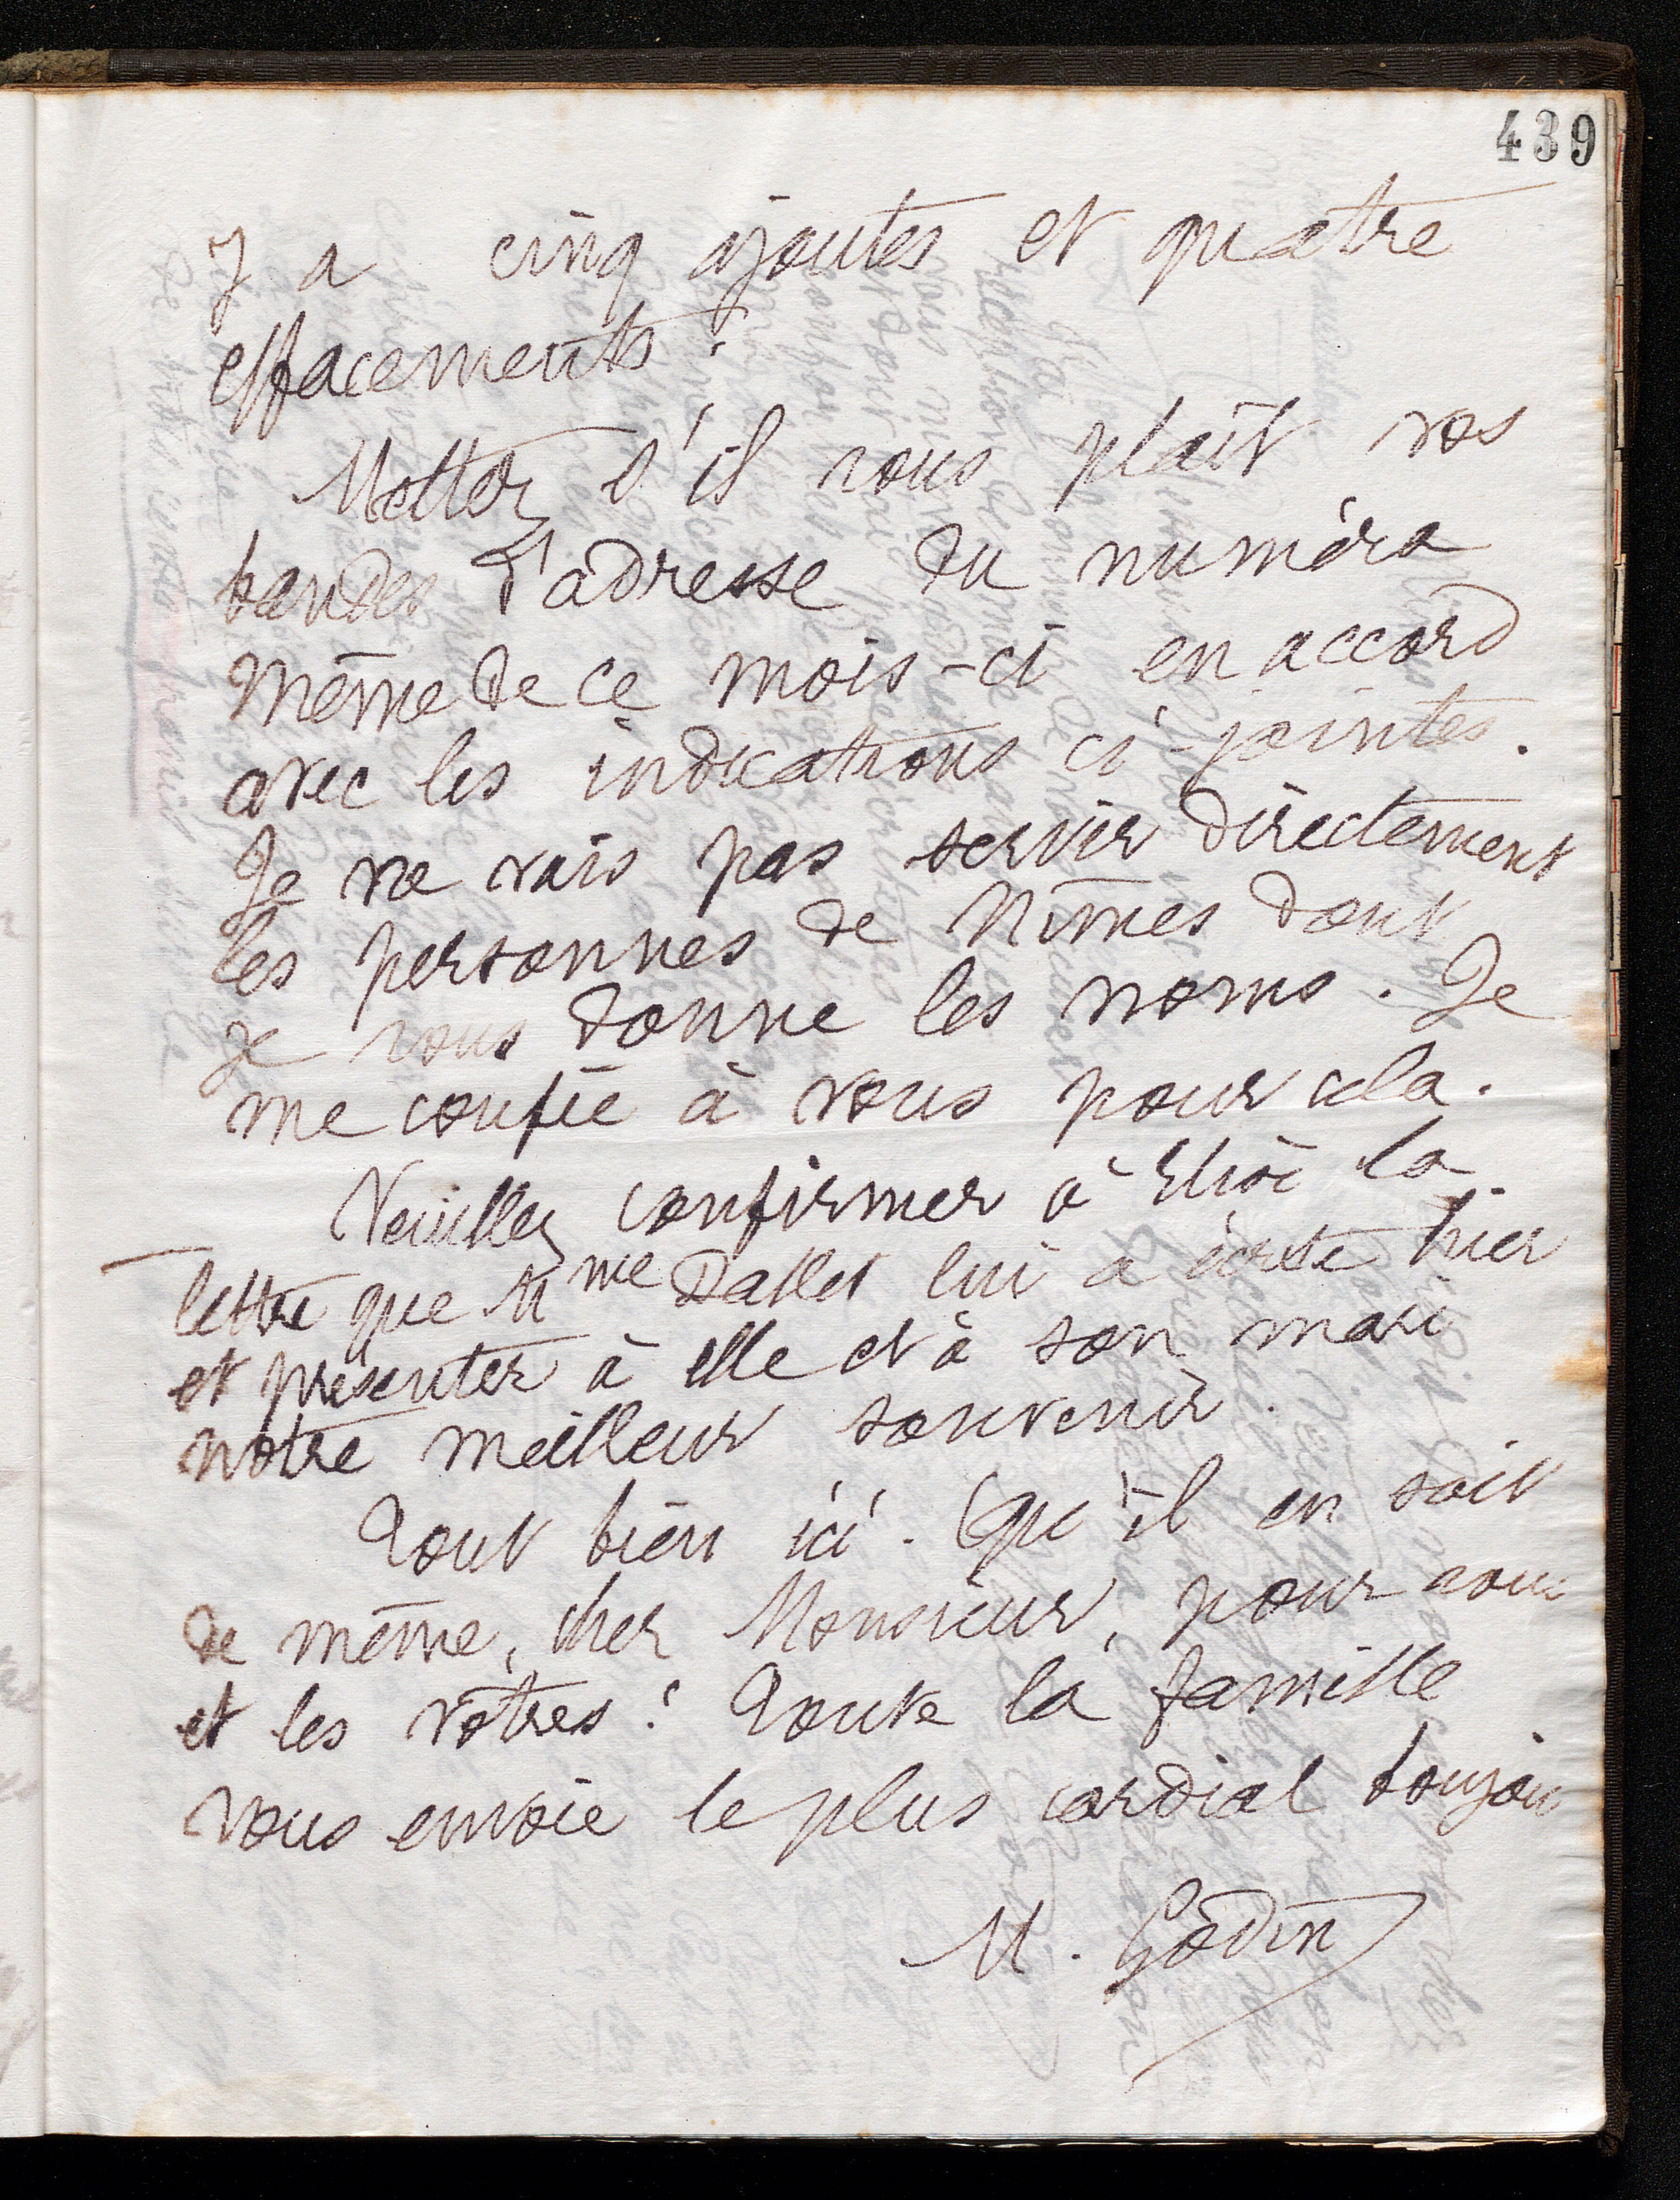 439
y a cinq ajoutés et quatre
effacements.
Mettez s'il vous plaît vos
bandes d'adresse du numéro
même de ce mois-ci en accord
avec les indications ci-jointes.
Je ne vais pas servir directement
les personnes de Nîmes dont
je vous donne les noms. Je
me confie à vous pour cela.
Veuillez confirmer à Elise la
lettre que Mme Dallet lui a écrite hier
et présenter à elle et à son mari
notre meilleur souvenir.
Tout bien ici. Qu'il en soit
de même, cher Monsieur, pour vous
et les vôtres ! Toute la famille
vous envoie le plus cordial bonjour
M. Godin